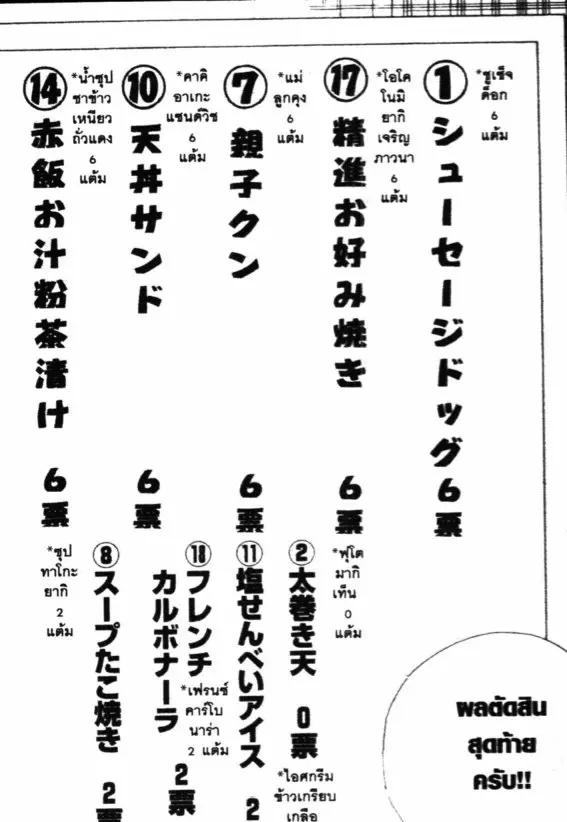 ① シューセージドッグ 6票
*ชูเซ็จ
ด็อก
6
แต้ม
⑰ 精進お好み焼き 6票
*โอโค
โนมิ
ยากิ
เจริญ
ภาวนา
6
แต้ม
⑦ 親子クン 6票
*แม่
ลูกคุง
6
แต้ม
⑩ 天丼サンド 6票
*คาคิ
อาเกะ
แซนด์วิช
6
แต้ม
⑭ 赤飯お汁粉茶漬け 6票
*น้ำซุป
ชาข้าว
เหนียว
ถั่วแดง
6
แต้ม
② 太巻き天 0票
*ฟุโต
มากิ
เท็น
0
แต้ม
⑪ 塩せんべいアイス 2
*ไอศกรีม
ข้าวเกรียบ
เกลือ
⑱ フレンチ
カルボナーラ 2票
*เฟรนช์
คาร์โบ
นาร่า
2 แต้ม
⑧ スープたこ焼き 2票
*ซุป
ทาโกะ
ยากิ
2
แต้ม
ผลตัดสิน
สุดท้าย
ครับ!!